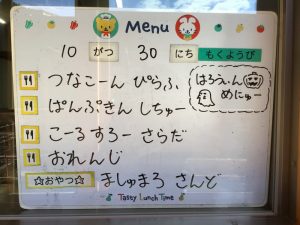 Menu
10 がつ 30 にち もくようび
はろうぃん
めにゅー
つなこーん ぴらふ
ぱんぷきん しちゅー
こーるすろー さらだ
おれんじ
☆おやつ☆ ましゅまろ さんど
Tasty Lunch Time